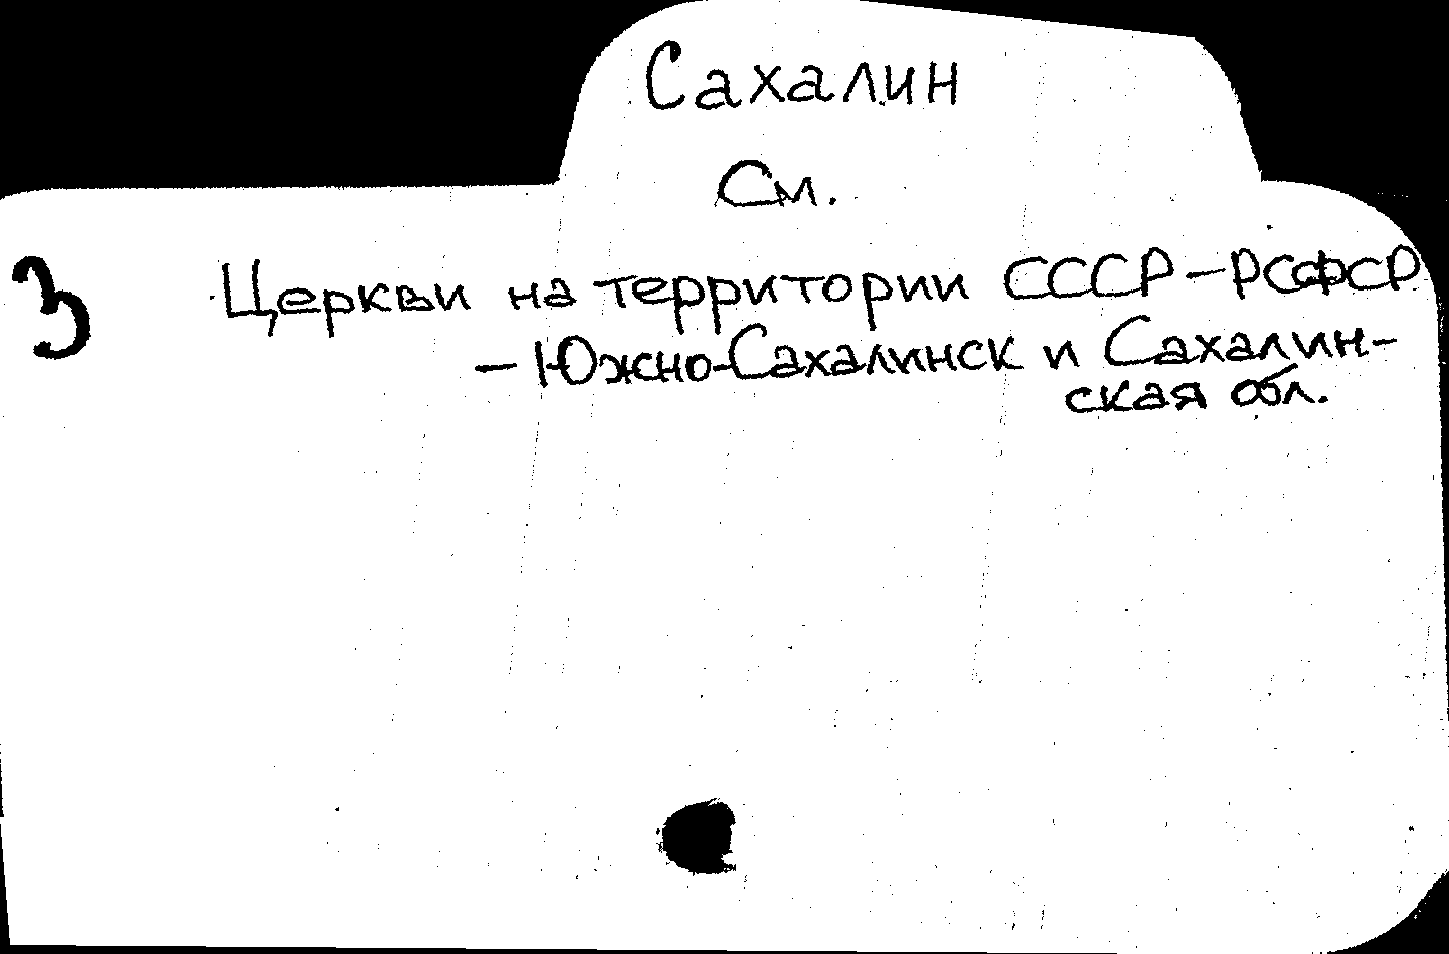 Сахалин
См.
3 Церкви на территории СССР – РСФСР
– Южно-Сахалинск и Сахалин-
ская обл.